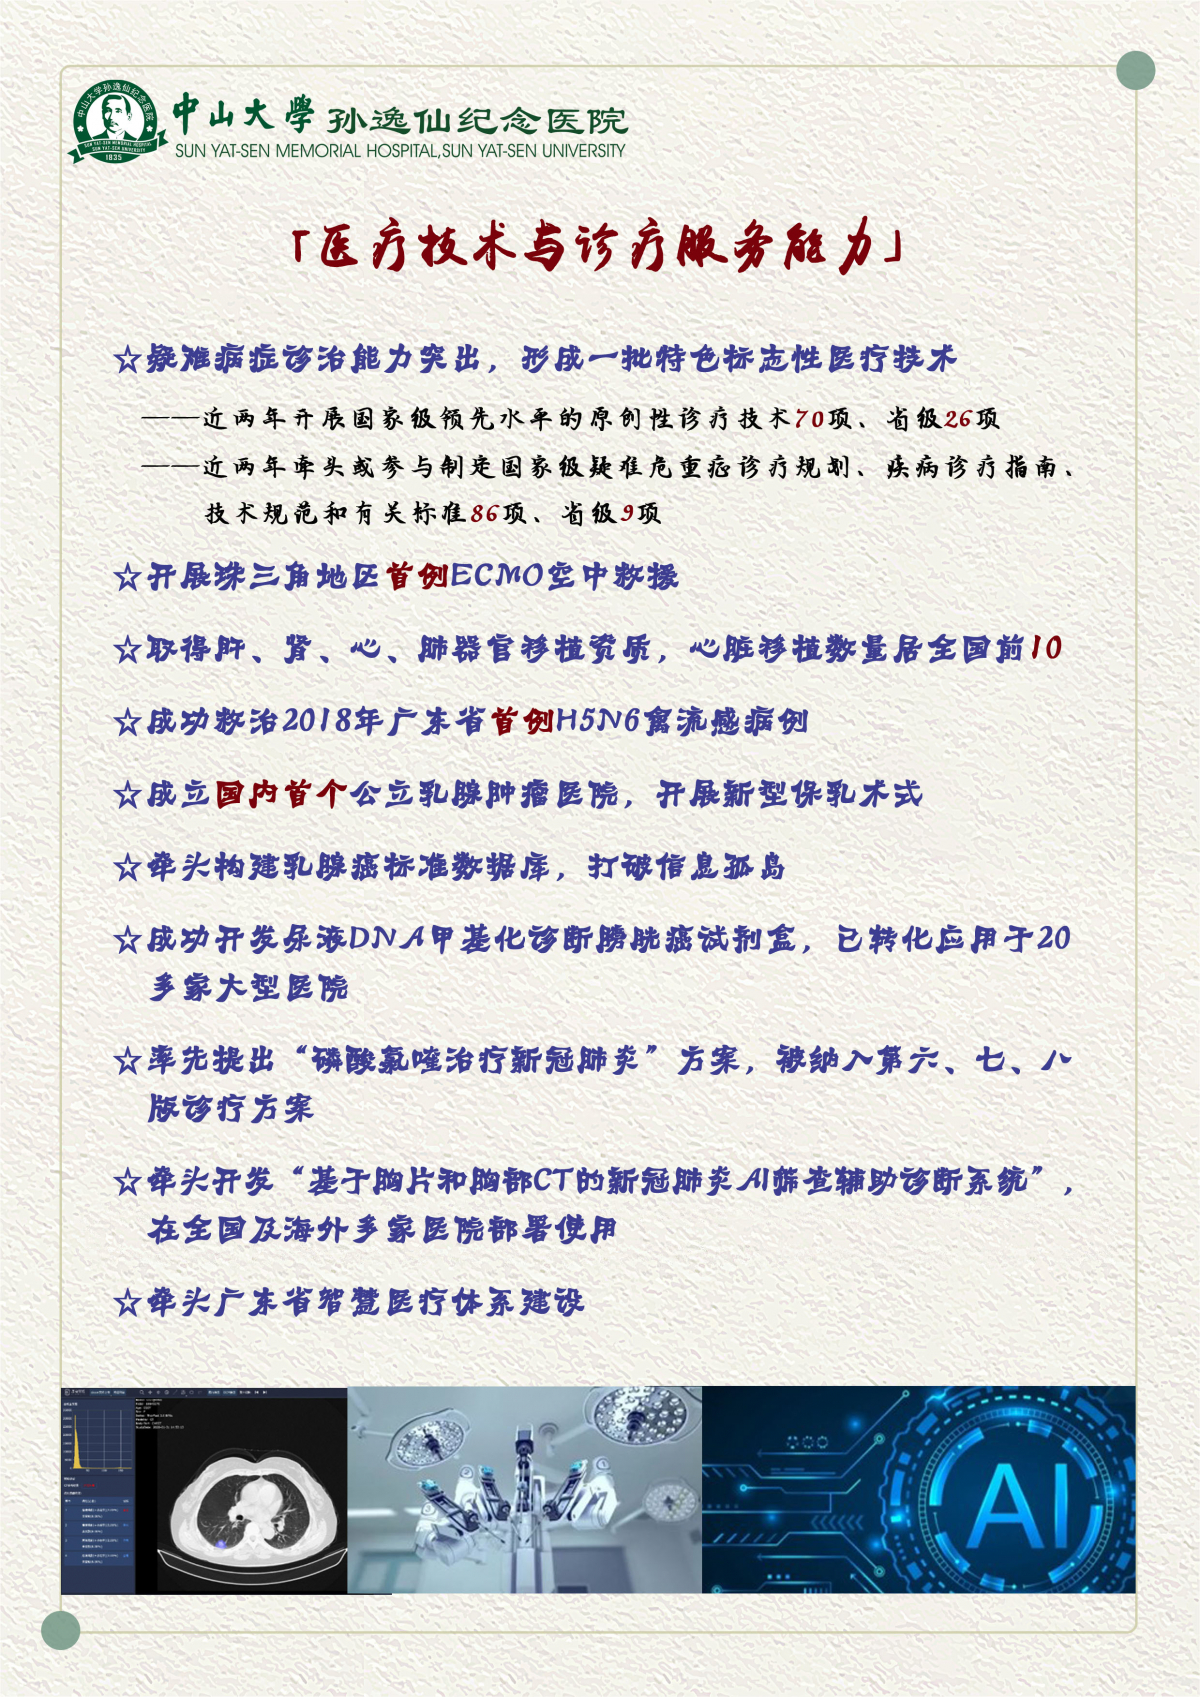 中山大學 孙逸仙纪念医院
SUN YAT-SEN MEMORIAL HOSPITAL,SUN YAT-SEN UNIVERSITY
中山大学孙逸仙纪念医院
SUN YAT-SEN MEMORIAL HOSPITAL
SUN YAT-SEN UNIVERSITY
1835
「医疗技术与诊疗服务能力」
☆疑难病症诊治能力突出，形成一批特色标志性医疗技术
——近两年开展国家级领先水平的原创性诊疗技术70项、省级26项
——近两年牵头或参与制定国家级疑难危重症诊疗规划、疾病诊疗指南、
技术规范和有关标准86项、省级9项
☆开展珠三角地区首例ECMO空中救援
☆取得肝、肾、心、肺器官移植资质，心脏移植数量居全国前10
☆成功救治2018年广东省首例H5N6禽流感病例
☆成立国内首个公立乳腺肿瘤医院，开展新型保乳术式
☆牵头构建乳腺癌标准数据库，打破信息孤岛
☆成功开发尿液DNA甲基化诊断膀胱癌试剂盒，已转化应用于20
多家大型医院
☆率先提出“磷酸氯喹治疗新冠肺炎”方案，被纳入第六、七、八
版诊疗方案
☆牵头开发“基于胸片和胸部CT的新冠肺炎AI筛查辅助诊断系统”，
在全国及海外多家医院部署使用
☆牵头广东省智慧医疗体系建设
AI